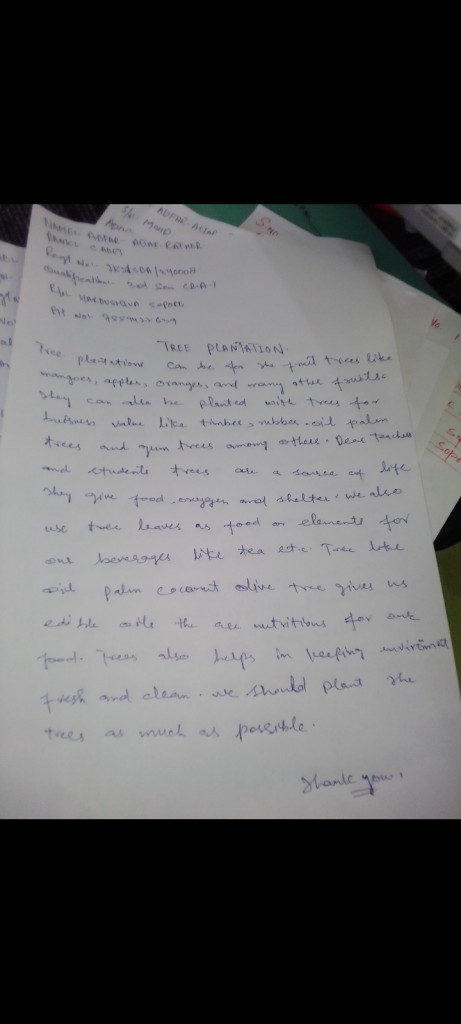 S/o
ADFAR
NAME:- ADFAR
RANK:- CADET
Regt No:-
Qualification:- 2nd Sem (B.A)
R/o:- SOPORE
PH No:-
TREE PLANTATION.
Tree plantations can be for the fruit trees like
mangoes, apples, oranges, and many other fruits.
They can also be planted with trees for
business value like timber, rubber. oil palm
trees and gum trees among others. Dear Teachers
and students trees are a source of life
They give food, oxygen and shelter. we also
use tree leaves as food or elements for
our beverages like tea etc. Tree like
oil palm coconut olive tree gives us
edible oils the are nutritions for our
food. Trees also helps in keeping
fresh and clean. we should plant the
trees as much as possible.
Thank you.